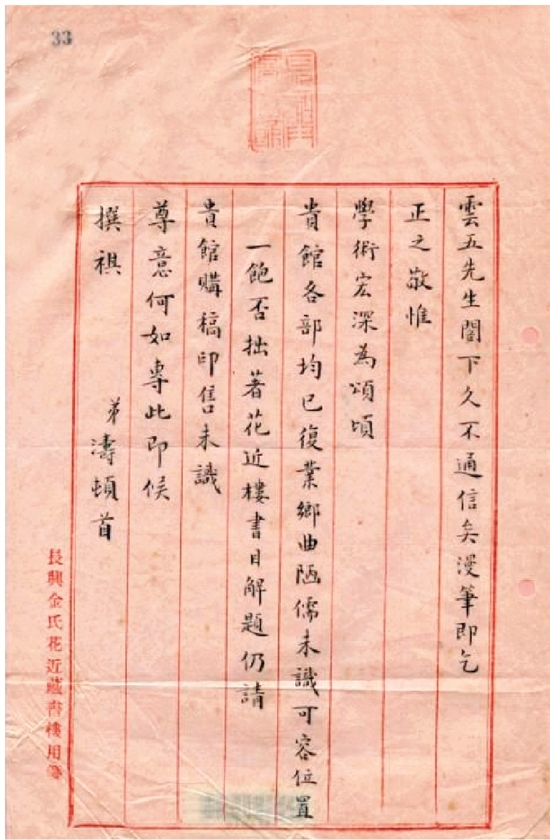 33
雲五先生閣下久不通信矣漫筆即乞
正之敬惟
學術宏深為頌頃
貴館各部均已復業鄉曲陋儒未識可容位置
一飽否拙著花近樓書目解題仍請
貴館購稿印售未識
尊意何如專此即候
撰祺
弟濤頓首
長興金氏花近藏書樓用箋